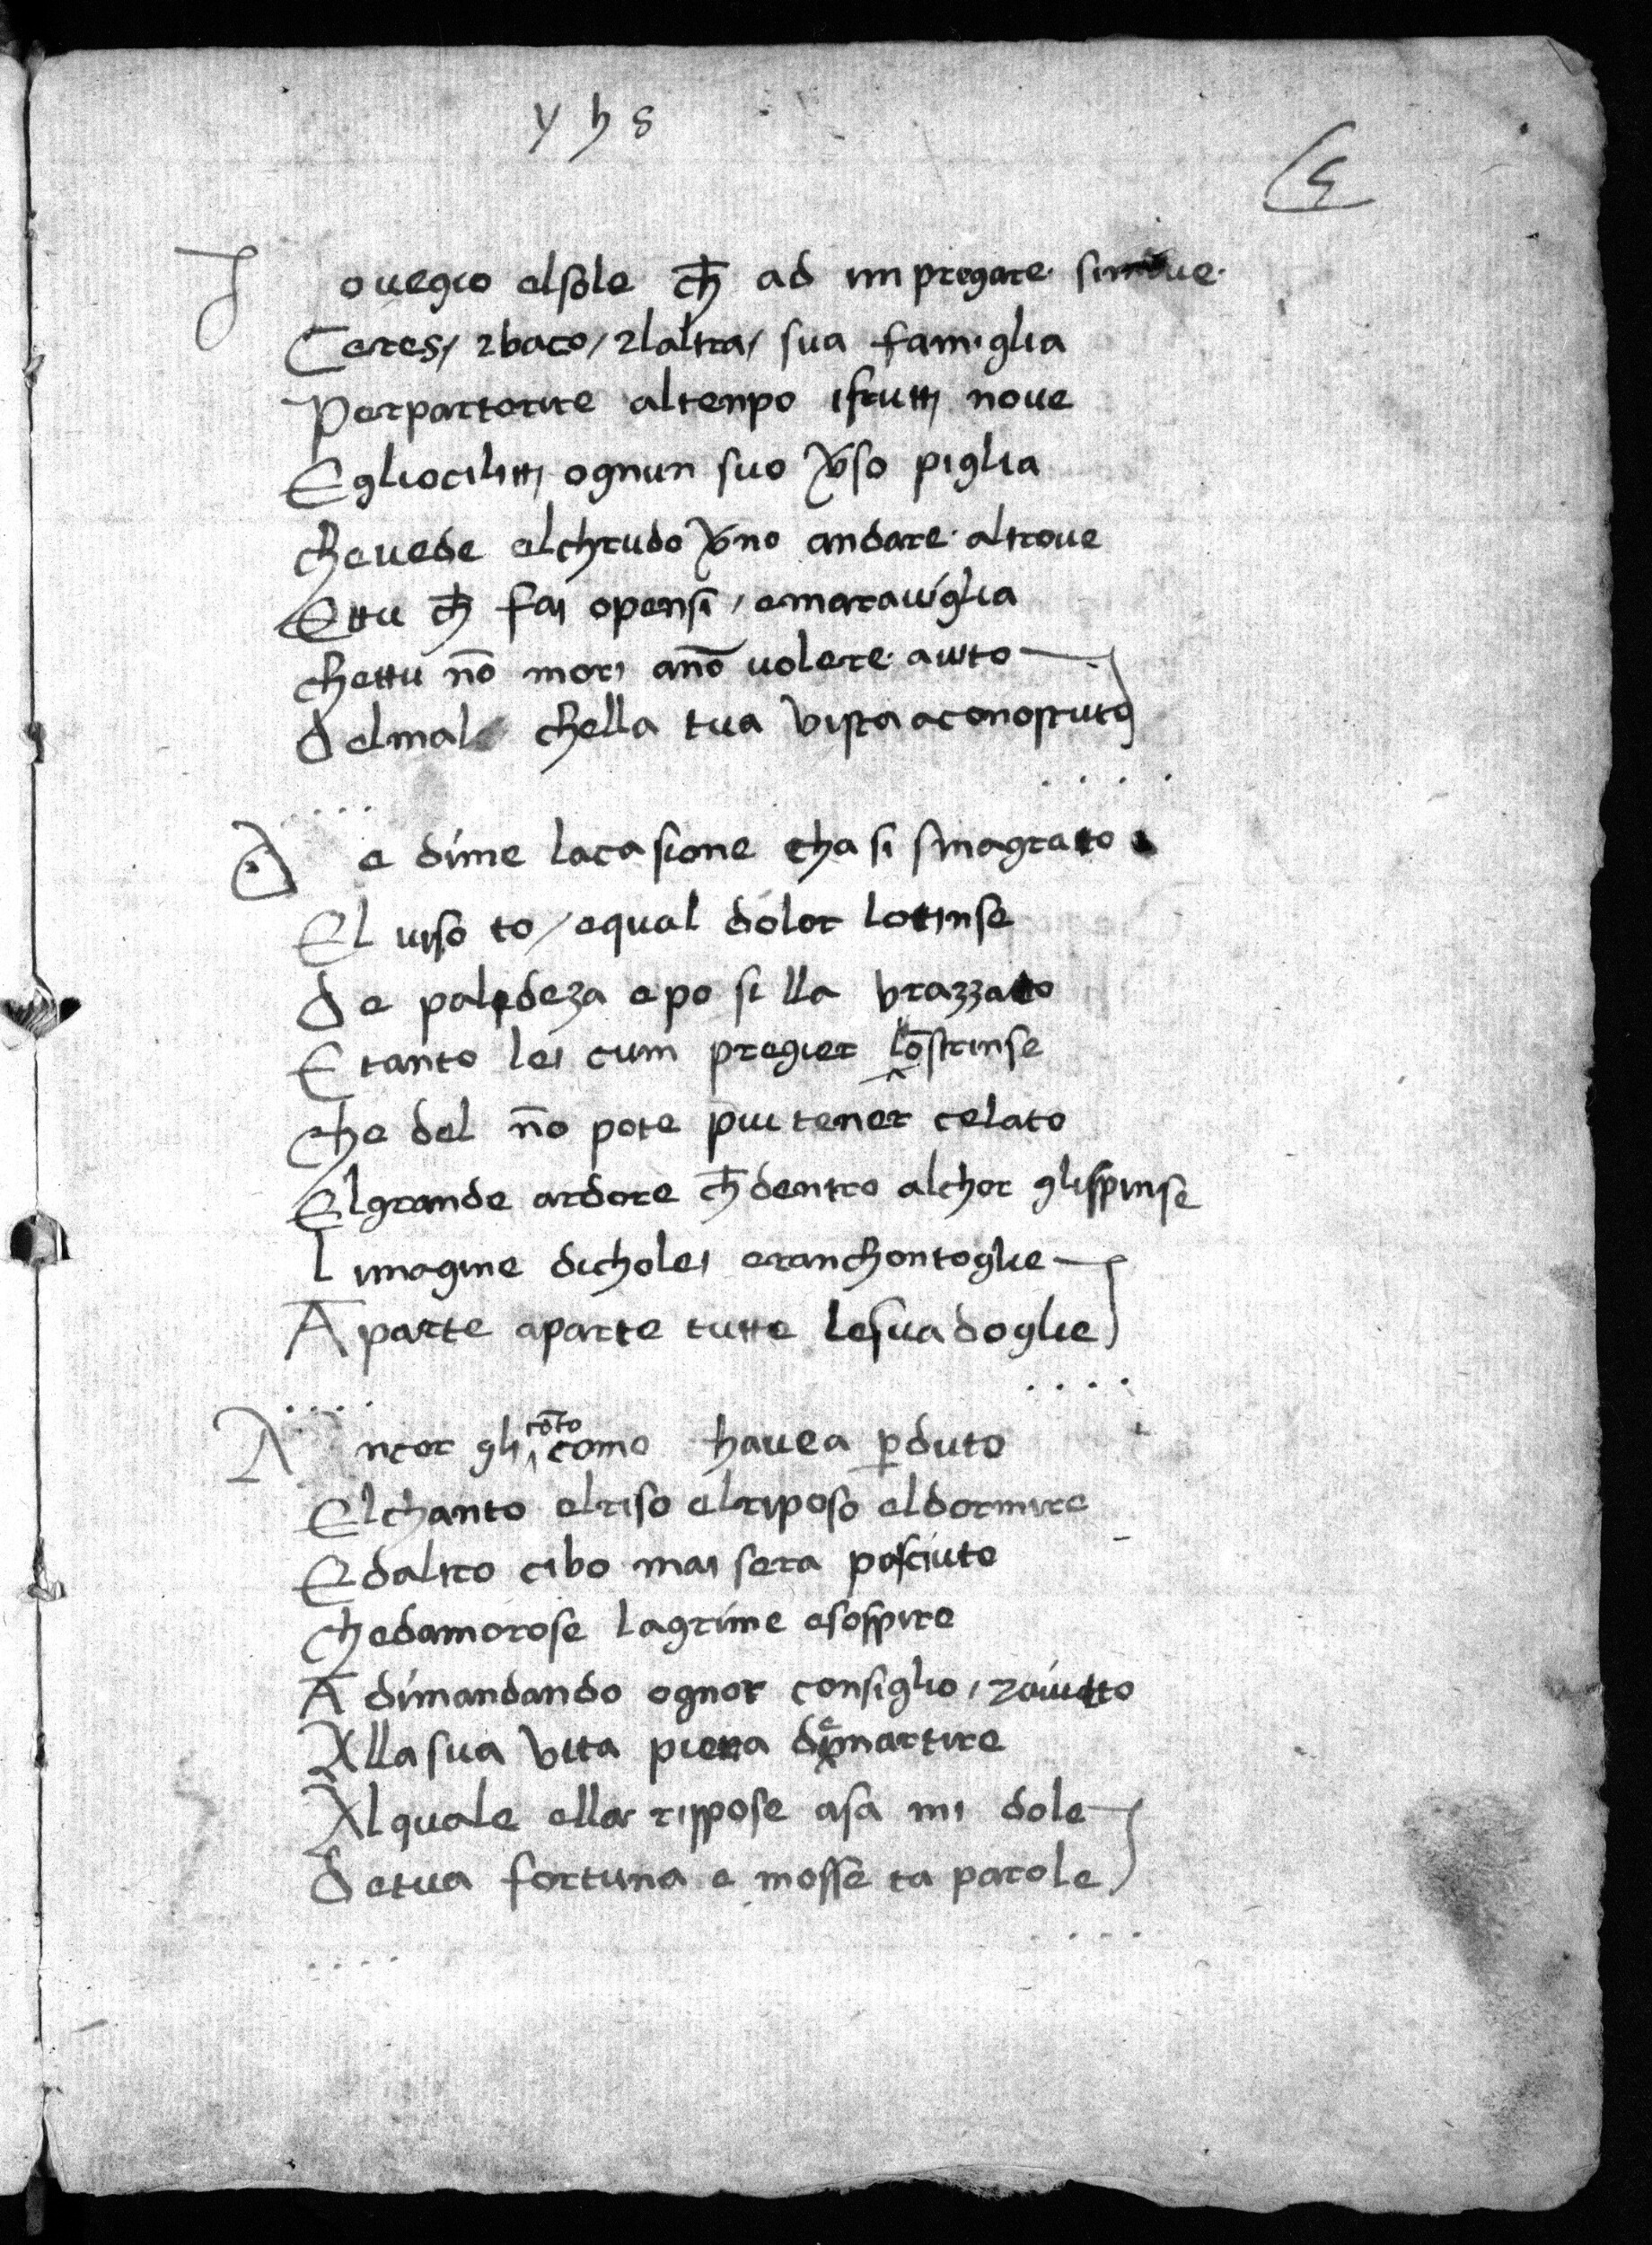 yhs
5
I o uegio elsole ch̄ ad impregare simoue
Ceres / ⁊ baco / ⁊ laltra / sua famiglia
Perpartorire altenpo ifrutti noue
E gliocilitti ognun suo ṽso piglia
che uede elchrudo ṽno andare altroue
Ettu ch̄ fai o pensi / e marauiglia
chettu nō mori anō uolere aiuto
delmal chella tua vista a conosciuto
D e dime lacasione cha si smagrato
El uiso to / e qual dolor lo tinse
de palideza e po si lla brazzato
E tanto lei cum pregier lo strinse
che del nō pote piu tener celato
El grande ardore ch̄ dentro alchor glispinse
L imagine dicholei eranchontoglie
A parte aparte tutte lesua doglie
A ncor gli cōto como hauea p̱duto
Elchanto elriso elriposo eldormire
Edaltro cibo mai sera pasciuto
chedamorose lagrime esospire
A dimandando ognor consiglio / ⁊ aiutto
Alla sua vita piena de martire
Al quale ella rispose asa mi dole
de tua fortuna e mosse ta parole